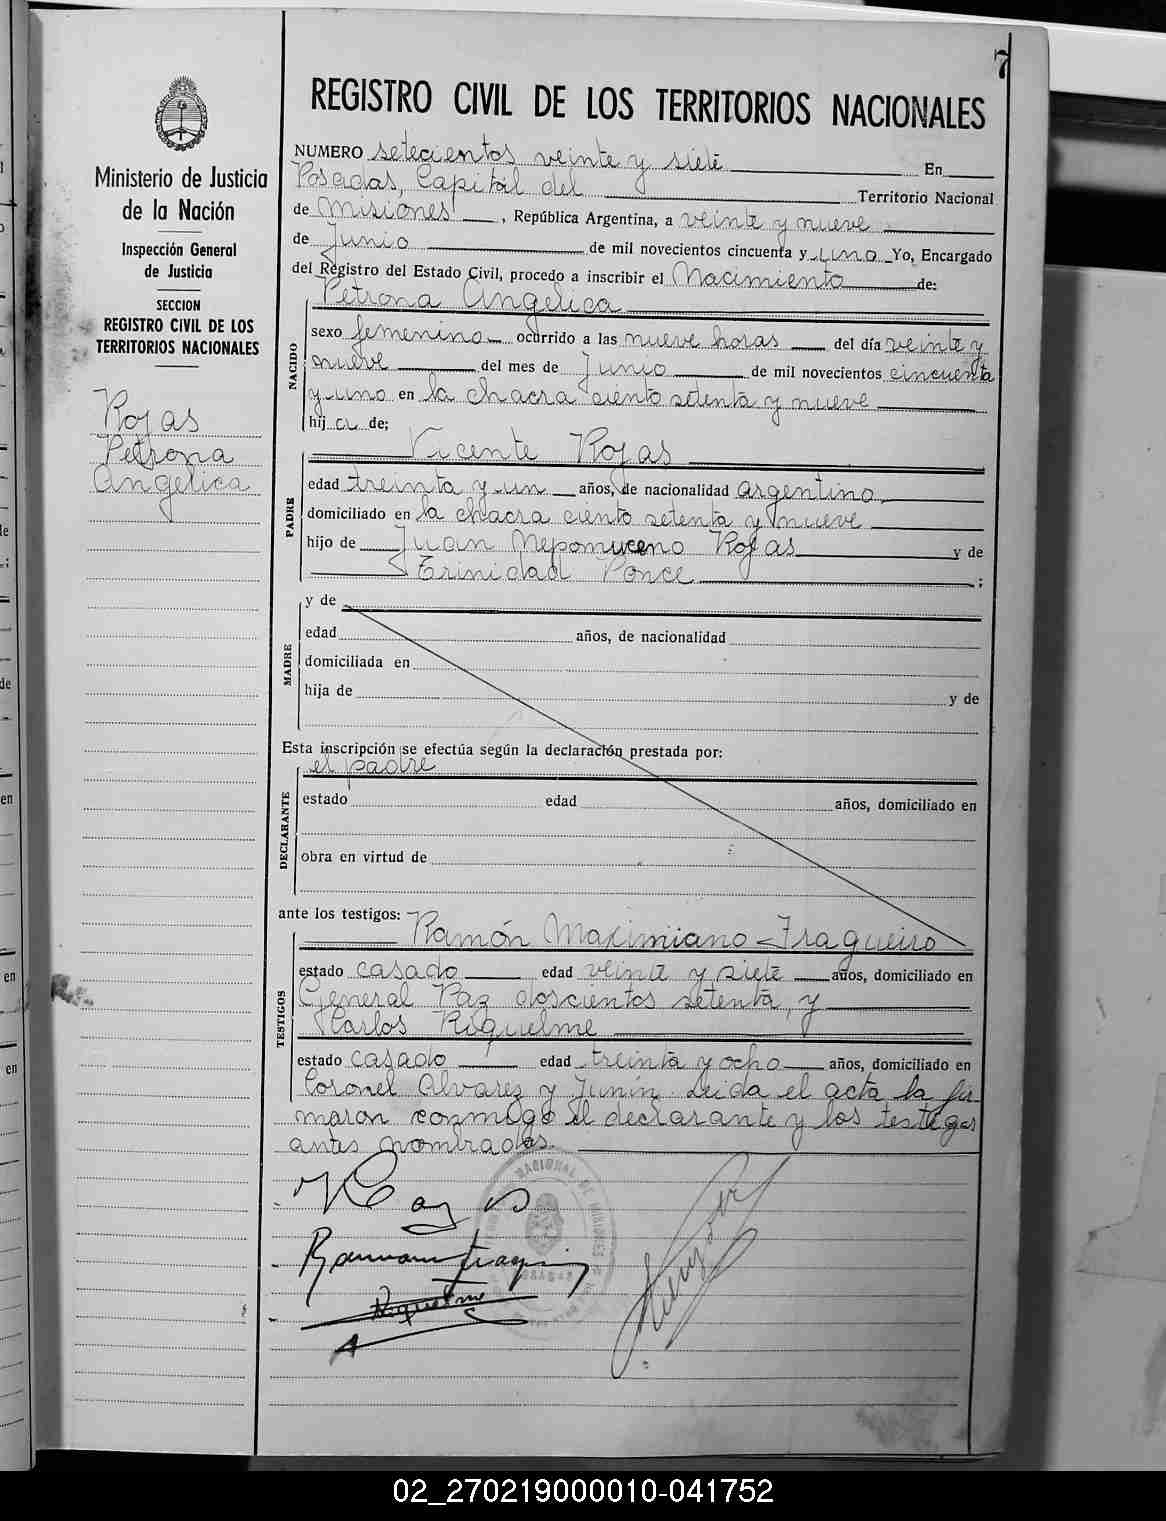 7
REGISTRO CIVIL DE LOS TERRITORIOS NACIONALES
Ministerio de Justicia
de la Nación
Inspección General
de Justicia
SECCION
REGISTRO CIVIL DE LOS
TERRITORIOS NACIONALES
Rojas
Petrona
Angelica
NUMERO setecientos veinte y siete En
Posadas, Capital del Territorio Nacional
de Misiones, República Argentina, a veinte y nueve
de Junio de mil novecientos cincuenta y uno Yo, Encargado
del Registro del Estado Civil, procedo a inscribir el Nacimiento de:
Petrona Angelica
NACIDO
sexo femenino ocurrido a las nueve horas del día veinte y
nueve del mes de Junio de mil novecientos cincuenta
y uno en la chacra ciento setenta y nueve
hija de;
Vicente Rojas
PADRE
edad treinta y un años, de nacionalidad argentino
domiciliado en la chacra ciento setenta y nueve
hijo de Juan Nepomuceno Rojas y de
Trinidad Ponce ;
MADRE
y de
edad años, de nacionalidad
domiciliada en
hija de y de
Esta inscripción se efectúa según la declaración prestada por:
el padre
DECLARANTE
estado edad años, domiciliado en
obra en virtud de
ante los testigos: Ramón Maximiano Fragueiro
TESTIGOS
estado casado edad veinte y siete años, domiciliado en
General Paz doscientos setenta, y
Carlos Riquelme
estado casado edad treinta y ocho años, domiciliado en
Coronel Alvarez y Junín. Leida el acta, la fir
maron conmigo el declarante y los testigos
antes nombrados.
Rojas
Riquelme
02_270219000010-041752